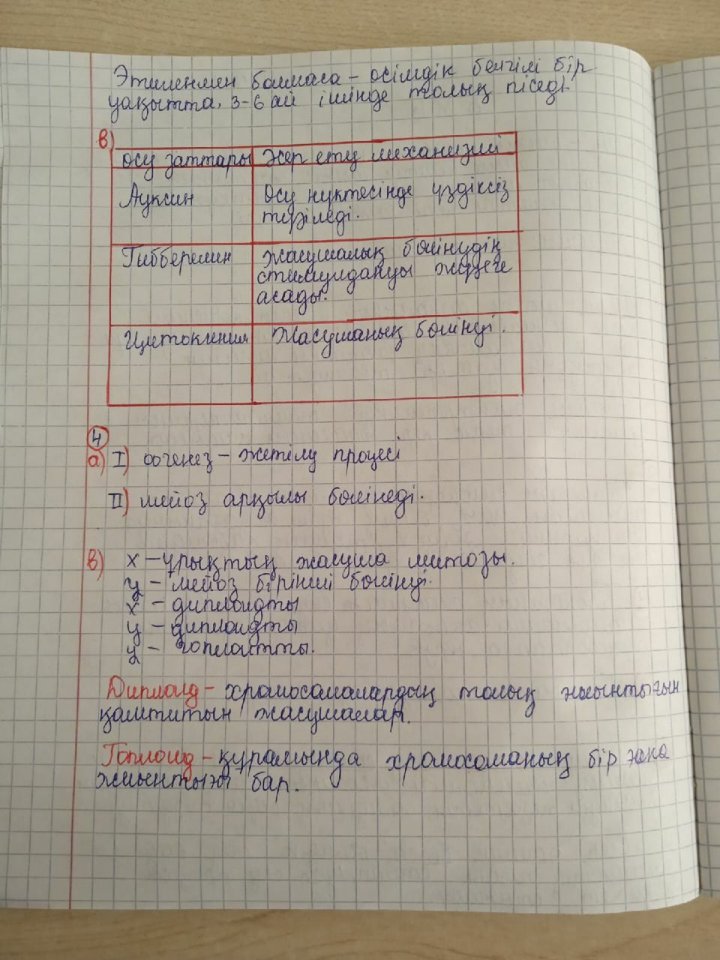 Этиленмен болмаса – өсімдік белгілі бір
уақытта, 3-6 ай ішінде толық піседі.
в)
өсу заттары
Әсер ету механизмі
Ауксин
Өсу нүктесінде үздіксіз
түзіледі.
Гибберелин
Жасушалық бөлінудің
стимулдануы жүзеге
асады.
Цитокинин
Жасушаның бөлінуі.
4
а) I) оогенез – жетілу процесі
II) мейоз арқылы бөлінеді.
в) х – ұрықтың жасуша митозы.
у – мейоз бірінші бөлінуі.
х – диплоидты
у – диплоидты
z – гоплоитты.
Диплоид – хромосомалардың толық жиынтығын
қамтитын жасушалар.
Гоплоид – құрамында хромосоманың бір ғана
жиынтығы бар.